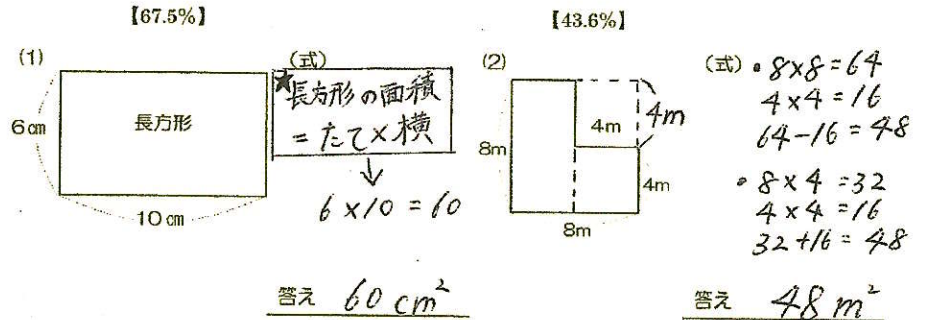 【67.5%】
(1)
6cm
長方形
10cm
(式)
★長方形の面積
=たて×横
↓
6×10=60
答え 60cm²
【43.6%】
(2)
8m
4m
4m
4m
8m
(式)
・8×8=64
4×4=16
64-16=48
・8×4=32
4×4=16
32+16=48
答え 48m²